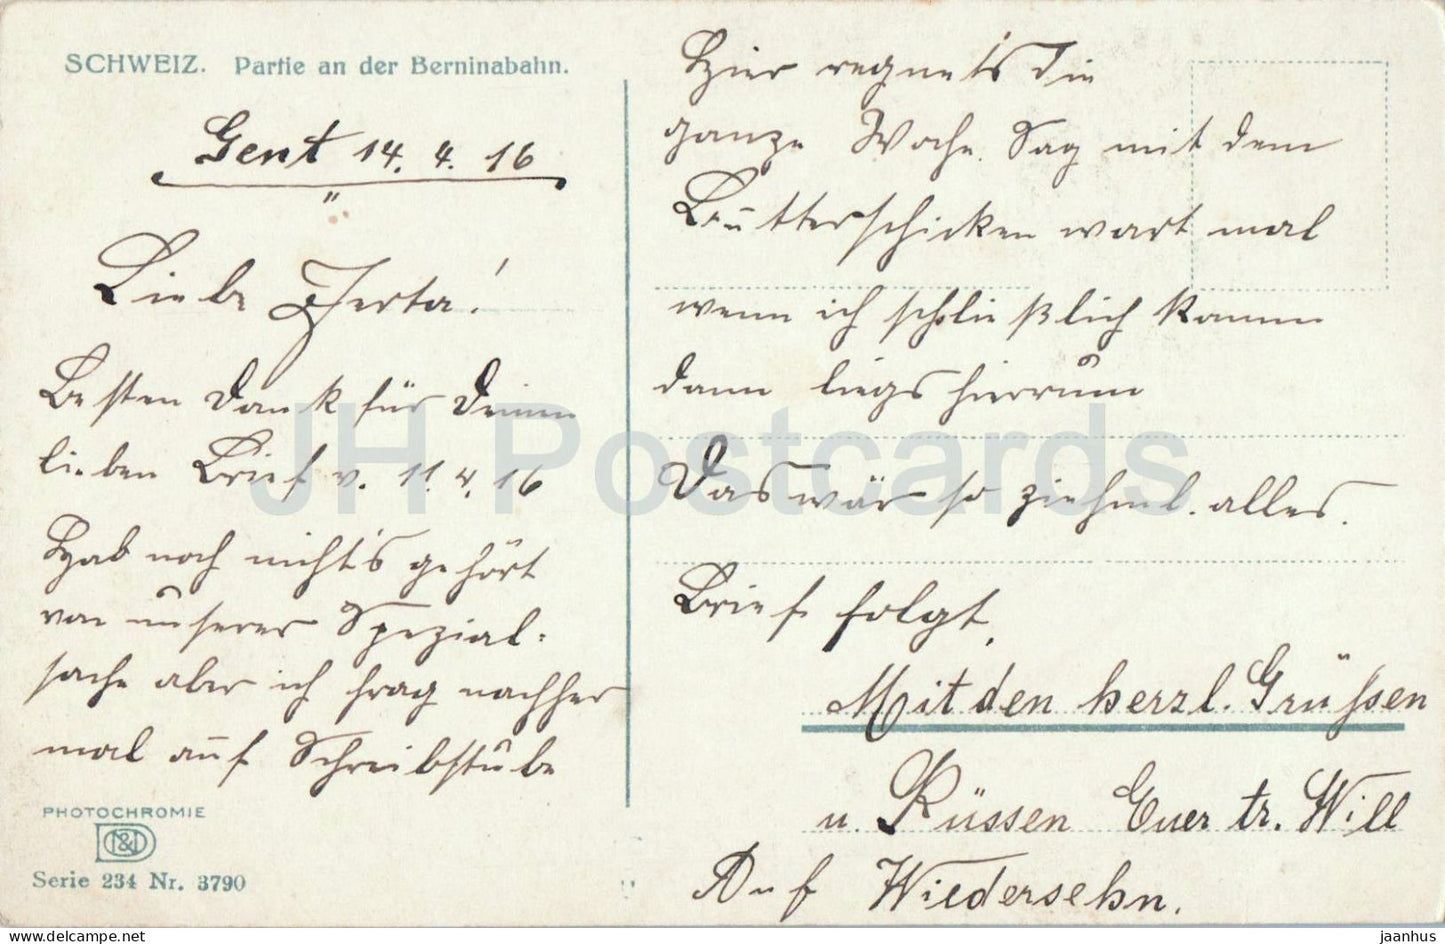 SCHWEIZ. Partie an der Berninabahn.
Gent 14. 4. 16
Liebe Herta!
Besten Dank für Deinen
lieben Brief v. 11. 4. 16
Hab noch nicht's gehört
von unserer Spezial-
sache aber ich frag nachher
mal auf Schreibstube
PHOTOCHROMIE
Serie 234 Nr. 3790
Hier regnet's die
ganze Woche. Sag mit dem
Butterschicken wart mal
wenn ich schließlich komm
dann liegs hierrum
Das wär so ziehml. alles.
Brief folgt.
Mit den herzl. Grüssen
u. Küssen Euer tr. Will
Auf Wiedersehn.
JH Postcards
delcampe.net
jaanhus